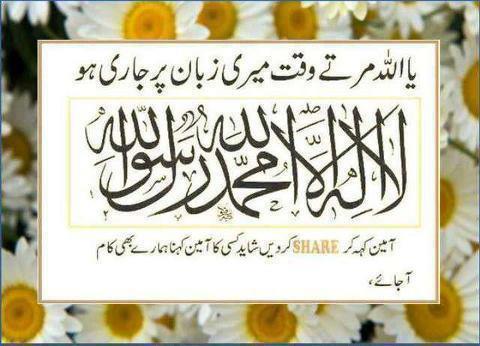 یا اللہ مرتے وقت میری زبان پر جاری ہو
لا الہ الا اللہ محمد رسول اللہ
آمین کہہ کر SHARE کردیں شاید کسی کا آمین کہنا ہمارے بھی کام
آجائے،